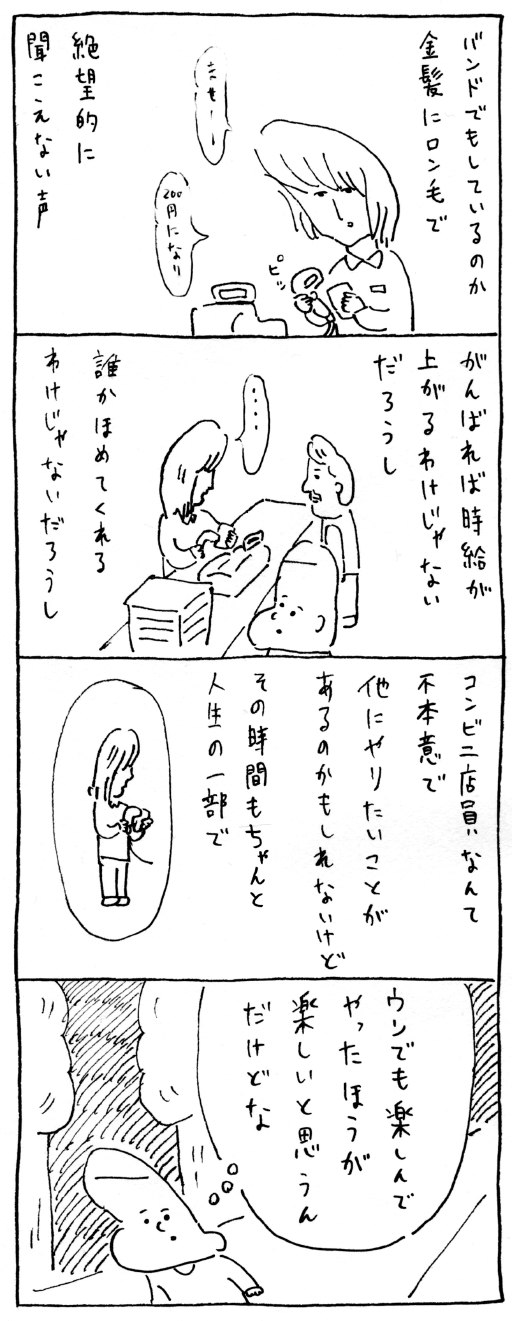 バンドでもしているのか
金髪にロン毛で
ピッ
200円になり
絶望的に
聞こえない声
がんばれば時給が
上がるわけじゃない
だろうし
・・・・
誰かほめてくれる
わけじゃないだろうし
コンビニ店員なんて
不本意で
他にやりたいことが
あるのかもしれないけど
その時間もちゃんと
人生の一部で
ウソでも楽しんで
やったほうが
楽しいと思うん
だけどな